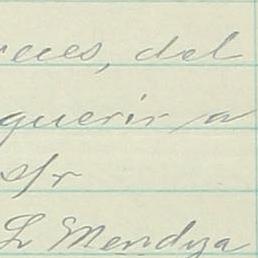 reces, del
querir a
s/r
L Mendya